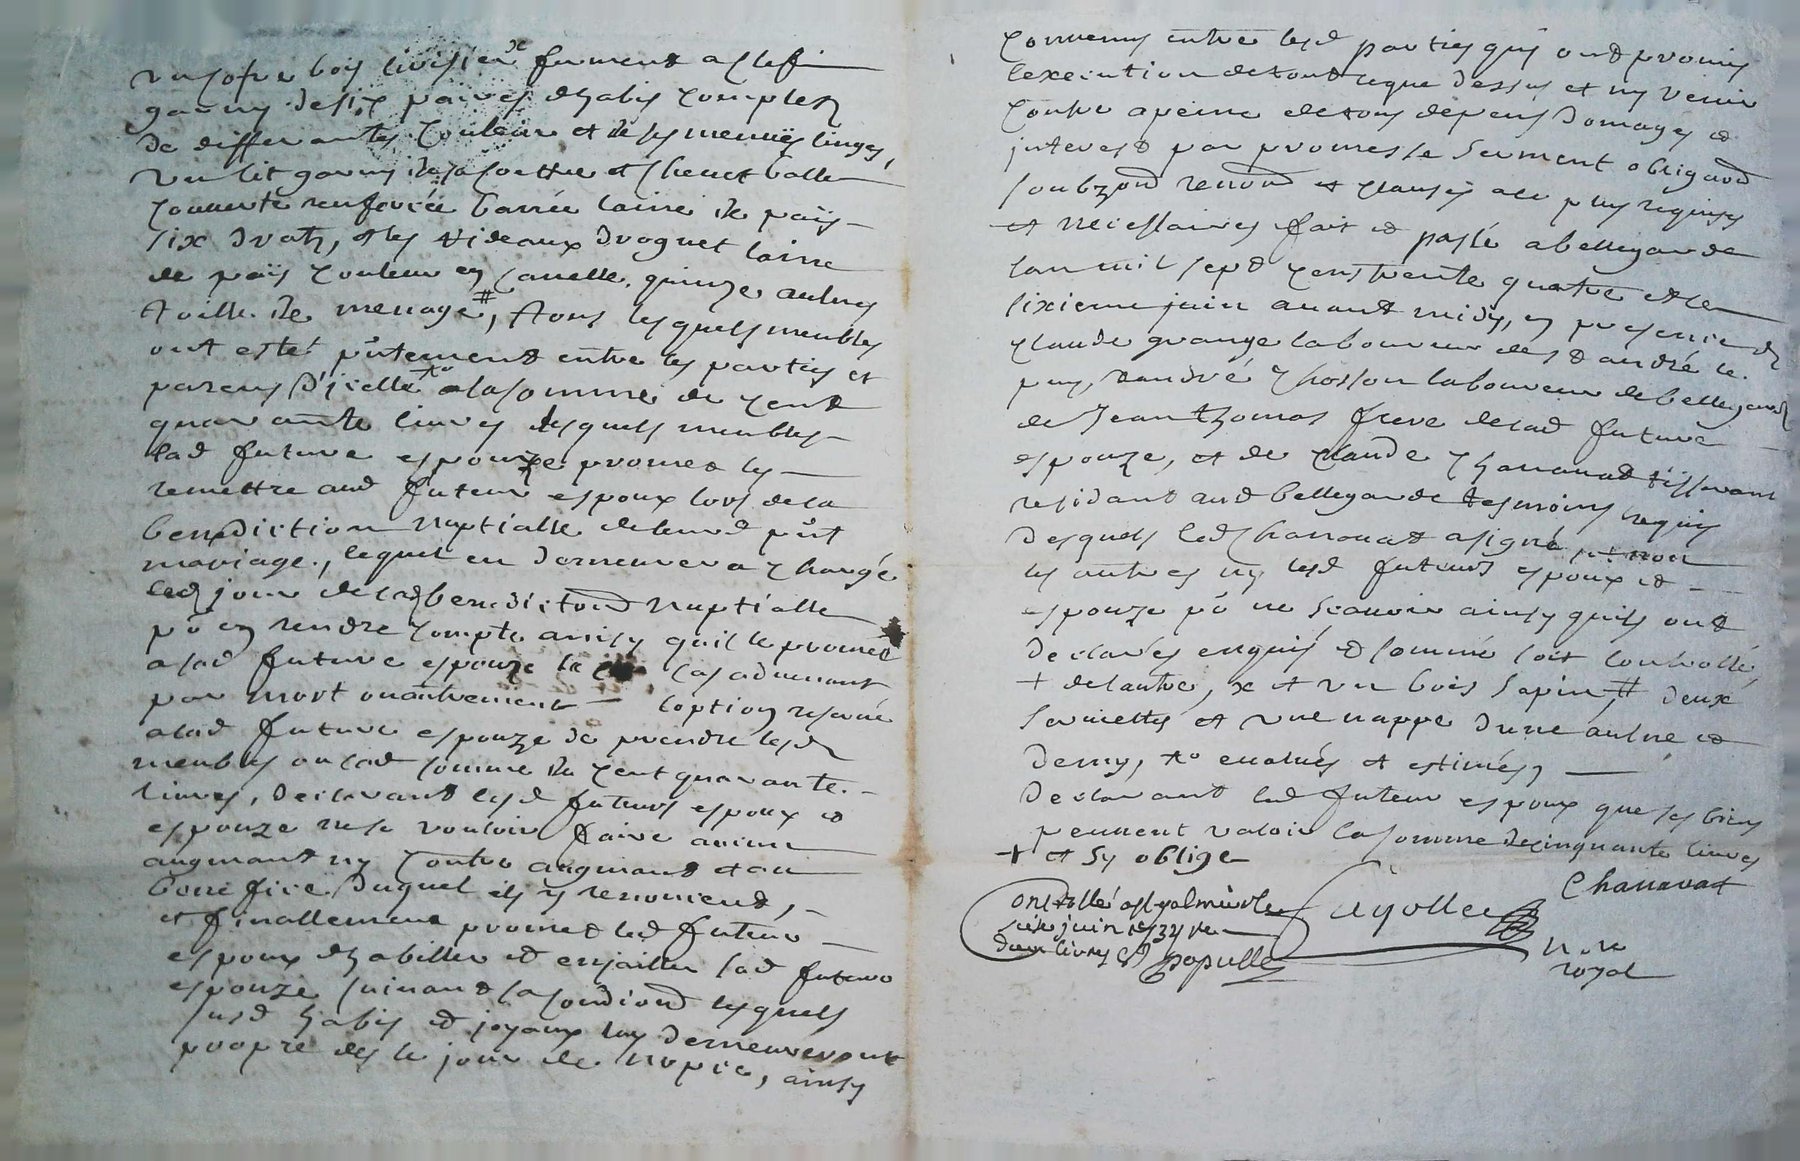 un cofre bois cerisier x fermant a cleff
garny de six paires d'habis complets
de differantes couleur et de ses menuës linges,
un lit garny de sa coettre et chevet balle
couverte renforcée barrée laine de païs
six draps, et les rideaux droguet laine
de païs couleur en canelle, quinze aulnes
toille de menage #, tous lesquels meubles
ont estés p̃ntement entre les parties et
parens d'icelle to a la somme de cent
quarante livres lesquels meubles
lad future espouze promet les
remettre aud futeur espoux lors de la
benediction nuptialle de leurd p̃nt
mariage, lequel en demeurera chargé
led jour de lad benedictond nuptialle
po en rendre compte ainsy quil le promet
a lad future espouze le cas advenant
par mort ou autrement loption reservé
a lad future espouze de prendre lesd
meubles ou lad somme de cent quarante
livres, declarant lesd futeurs espoux et
espouze ne se vouloir faire aucun
augmant ny contre augmant et au
benefice duquel ils y renoncent,
et finallement promet led futeur
espoux d'habiller et enjailler lad future
espouze suivant sa condiond lesquels
susd habis et joyaux luy demeureront
propre des le jour de nopce, ainsy
convenus entre lesd parties quy ont promis
lexecution de tout ceque dessus et ny venir
contre a peine de tous depens domages et
interest par promesse serment obligaond
soubzond renond et clauses au plus requises
et necessaires fait et passé a bellegarde
lan mil sept cens trente quatre et le
sixieme juin avant midy, en presence de
claude grange laboureur de st andré le
puy, d'andré chosson laboureur de bellegarde
de Jean thomas frere de lad future
espouze, et de claude chanavat tisserant
residant aud bellegarde tesmoins requis
desquels led chanavat a signé, et non
les autres ny lesd futeurs espoux et
espouze po ne scavoir ainsy quils ont
declarés enquis et sommé soit controllé,
+ de lautre, x et un bois sapin, # deux
serviettes et une nappe dune aulne et
demy, to evalués et estimés,
declarant led futeur espoux que ses biens
peuvent valoir la somme de cinquante livres
+ et sy oblige
Chanavat
Controllé a st galmier le
six juin 1734 re
deux livres
populle
Cuyollet
n re
royal